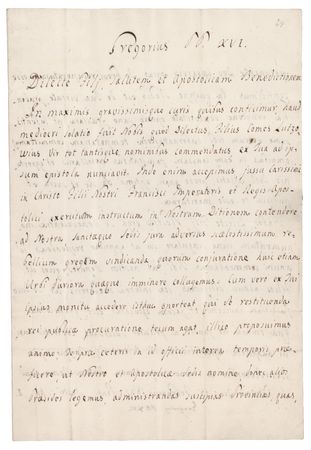 24
Gregorius PP. XVI.
Dilecte Fili, Salutem et Apostolicam Benedictionem
In maximis gravissimisque curis quibus conterimur, haud
mediocri solatio fuit Nobis quod Dilectus Filius Comes
Vir tot tantisque nominibus commendatus ex Tua ad ip-
sum epistola nunciavit. Inde enim accepimus jussu Carissimi
in Christo Filii Nostri Francisci Imperatoris et Regis Apo-
stolici exercitum instructum in Nostram Ditionem contendere
ad Nostra Sanctaeque Sedis jura adversus scelestissimum re-
bellium gregem vindicanda quorum conjuratione huic etiam
Urbi duriora quaeque imminere collegamus. Cum vero ex Tui
ipsius monitu accedere isthuc oporteat, qui de restituenda
rei publicae procuratione tecum agat, illico proposuimus
animo Tempra ceteris in id officii interea temporis prae-
ficere ut Nostro et Apostolicae Sedis nomine hasce, quo-
Praesides legemus, administrandas suscipias Provincias, quas,